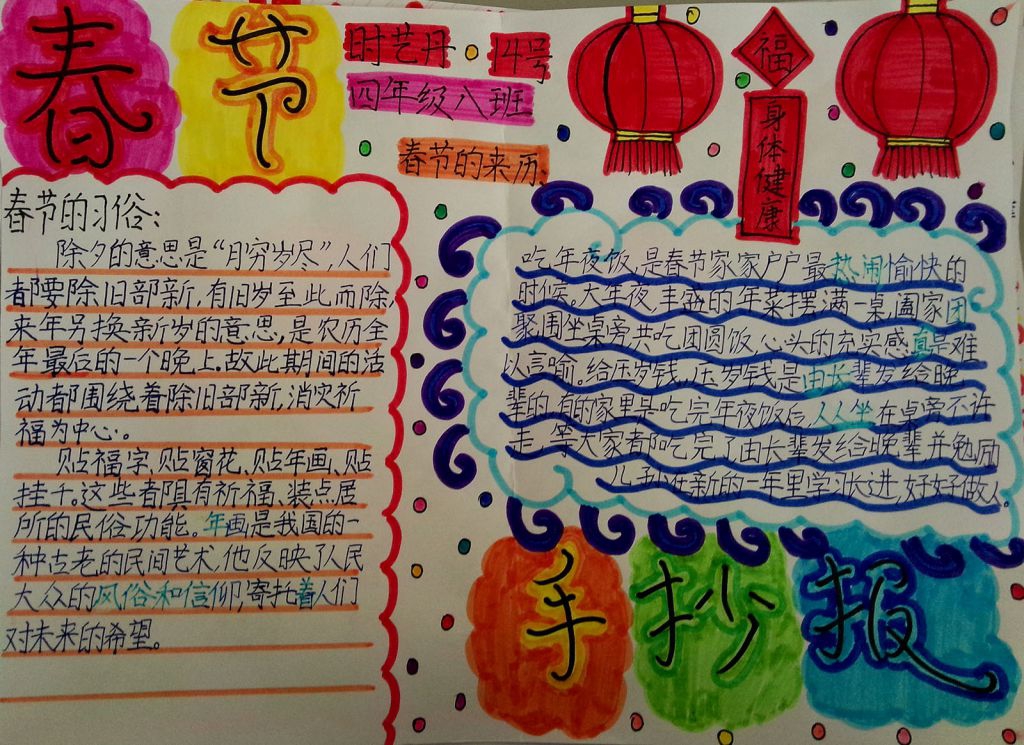 春节
时艺丹 14号
四年级八班
春节的来历:
福
身体健康
春节的习俗:
除夕的意思是“月穷岁尽”,人们
都要除旧部新,有旧岁至此而除,
来年另换新岁的意思,是农历全
年最后的一个晚上.故此期间的活
动都围绕着除旧部新,消灾祈
福为中心。
贴福字、贴窗花、贴年画、贴
挂千。这些都具有祈福、装点居
所的民俗功能。年画是我国的一
种古老的民间艺术,他反映了人民
大众的风俗和信仰,寄托着人们
对未来的希望。
吃年夜饭,是春节家家户户最热闹愉快的
时候。大年夜,丰盛的年菜摆满一桌,阖家团
聚,围坐桌旁,共吃团圆饭,心头的充实感真是难
以言喻。给压岁钱,压岁钱是由长辈发给晚
辈的,有的家里吃完年夜饭后,人人坐在桌旁不许
走,等大家都吃完了由长辈发给晚辈并勉励
儿孙在新的一年里学习长进,好好做人。
手抄报